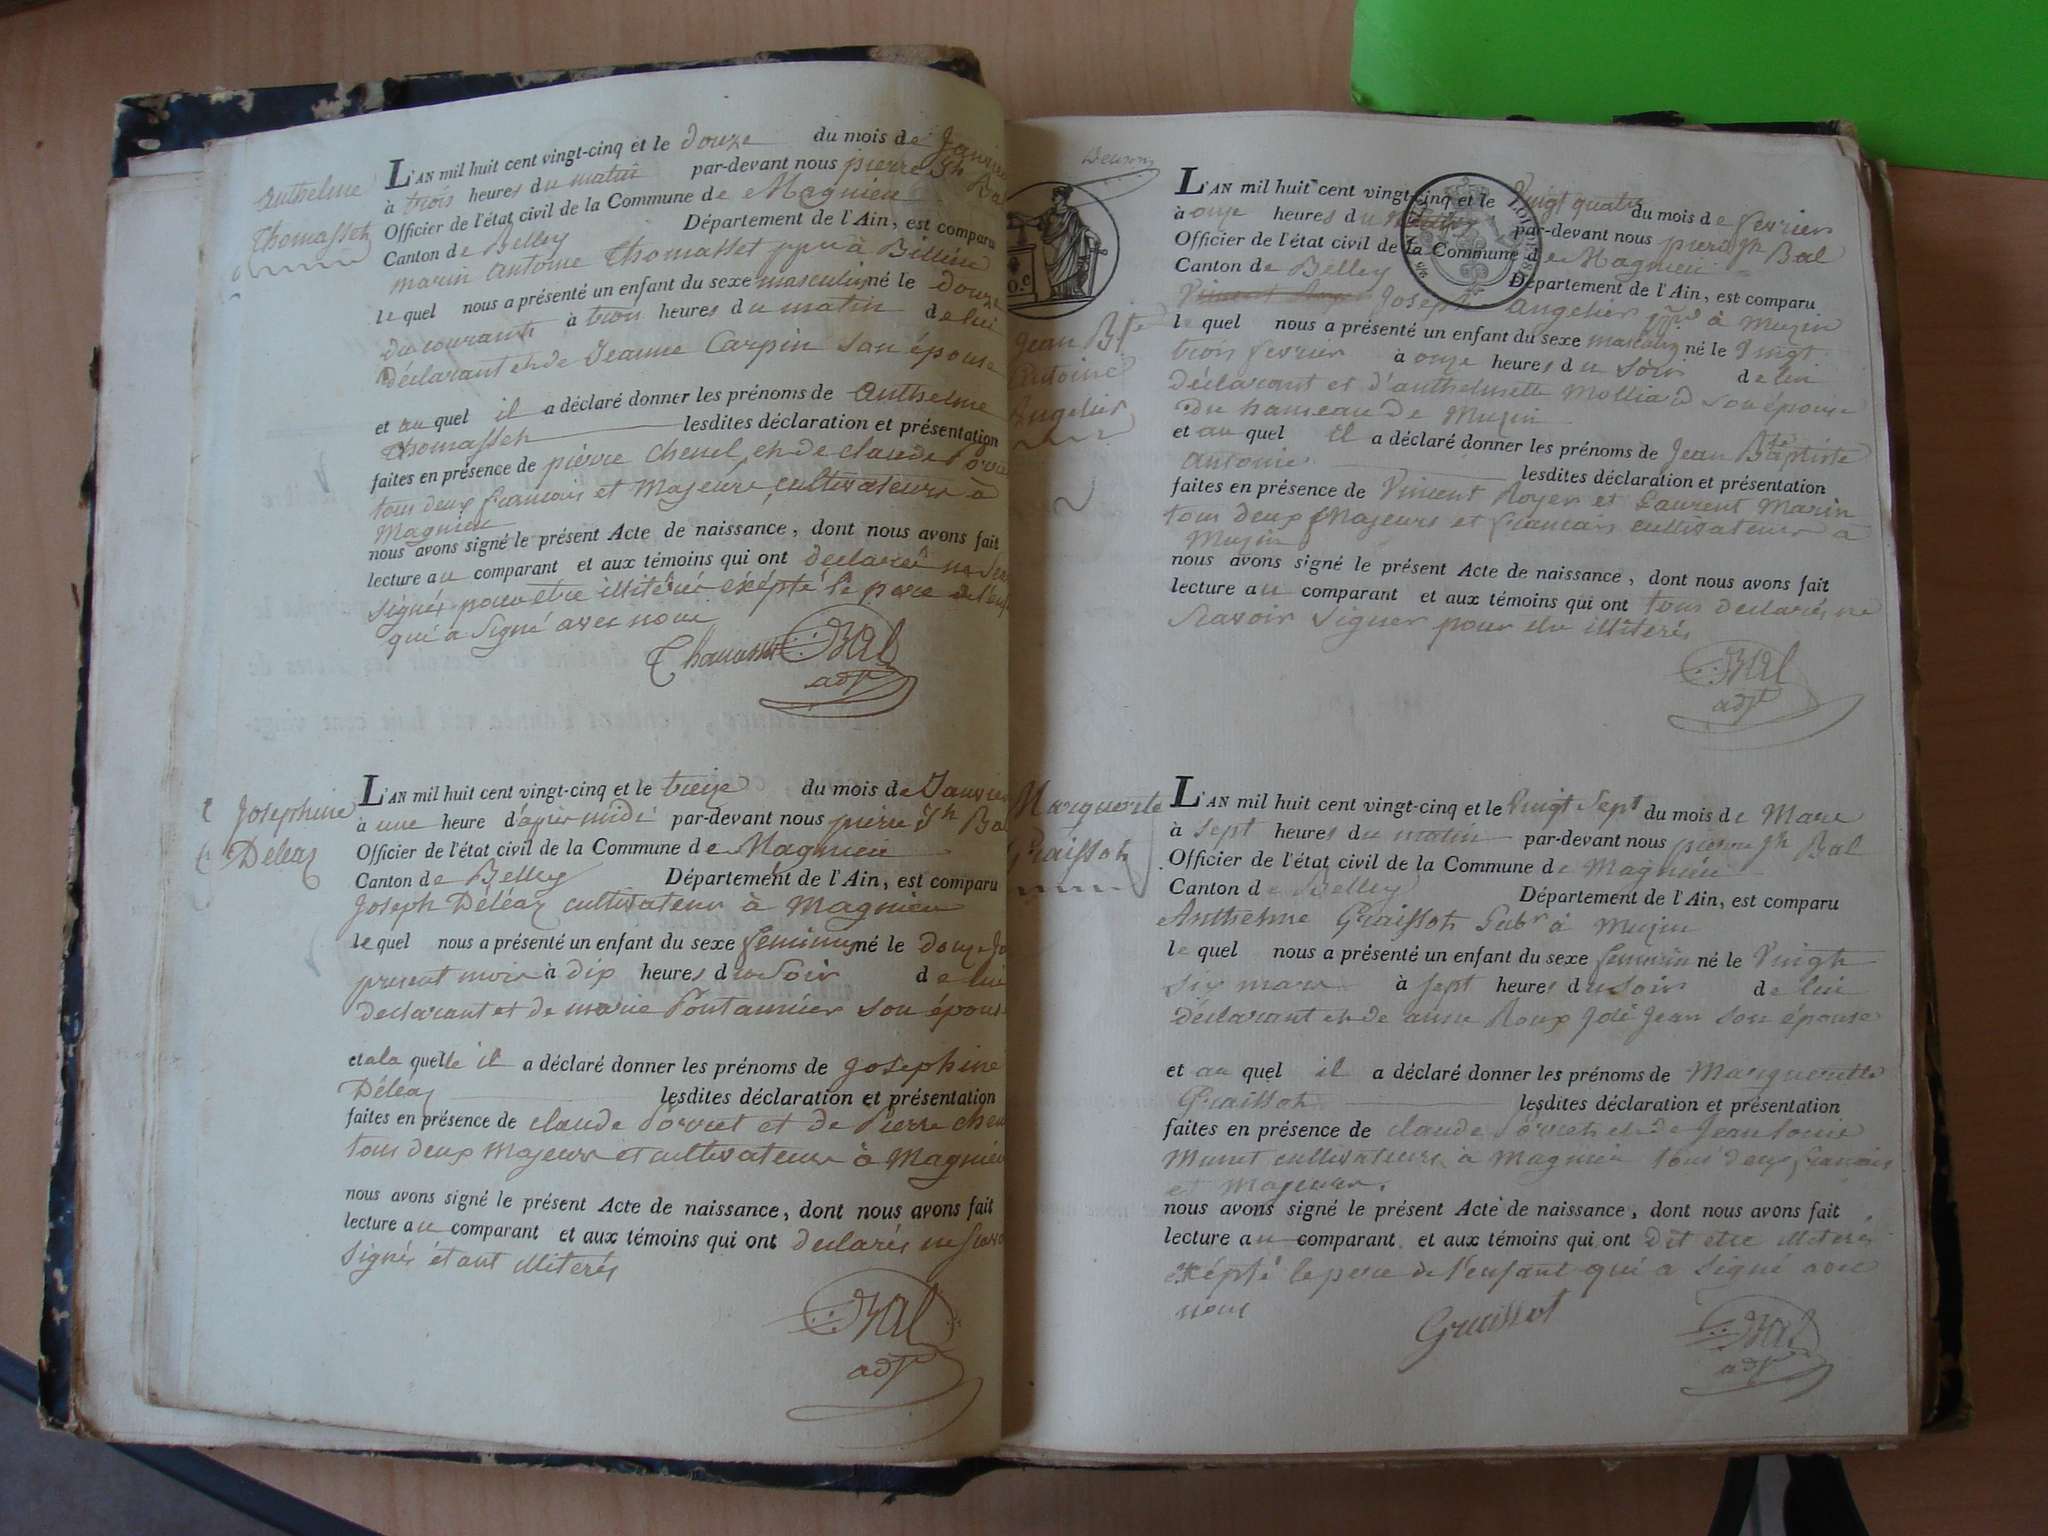 Anthelme
Thomasset
L'AN mil huit cent vingt-cinq et le douze du mois de Janvier
à trois heures du matin par-devant nous pierre Jh Bal
Officier de l'état civil de la Commune de Magnieu
Canton de Belley Département de l'Ain, est comparu
marin antoine Thomasset ppre à Billieu
le quel nous a présenté un enfant du sexe masculin né le douze
du courant à trois heures du matin de lui
déclarant et de Jeanne Carpin son épouse
et au quel il a déclaré donner les prénoms de anthelme
Thomasset lesdites déclaration et présentation
faites en présence de pierre Chenel et de claude
tous deux francais et Majeurs cultivateurs à
Magnieu
nous avons signé le présent Acte de naissance, dont nous avons fait
lecture au comparant et aux témoins qui ont déclarés ne
signés pour etre illitérés éxépté le pere de l'enf
qui a signé avec nous
Thomasset Bal
adjt
Josephine
Déléaz
L'AN mil huit cent vingt-cinq et le treize du mois de Janvier
à une heure d'apier midi par-devant nous pierre Jh Bal
Officier de l'état civil de la Commune de Magnieu
Canton de Belley Département de l'Ain, est comparu
Joseph Déléaz cultivateur à Magnieu
le quel nous a présenté un enfant du sexe feminin né le douze
present mois à dix heures du soir de lui
declarant et de marie Fontannier son épouse
et a la quelle il a déclaré donner les prénoms de Josephine
Déléaz lesdites déclaration et présentation
faites en présence de claude et de Pierre chen
tous deux Majeurs et cultivateurs à Magnieu
nous avons signé le présent Acte de naissance, dont nous avons fait
lecture au comparant et aux témoins qui ont declarés ne
signés étant illiterés
Bal
adjt
Jean Bte
Antoine
Angelier
L'AN mil huit cent vingt-cinq et le Vingt quatre du mois de fevrier
à onze heures du par-devant nous pierre Jh Bal
Officier de l'état civil de la Commune de Magnieu
Canton de Belley Département de l'Ain, est comparu
Joseph Angelier ppre à Muzin
le quel nous a présenté un enfant du sexe masculin né le Vingt
trois fevrier à onze heures du soir de lui
déclarant et d'anthelmette Molliard son épouse
du hameau de Muzin
et au quel il a déclaré donner les prénoms de Jean Baptiste
antoine lesdites déclaration et présentation
faites en présence de Vincent Royer et Laurent Marin
tous deux Majeurs et francais cultivateurs à
Muzin
nous avons signé le présent Acte de naissance, dont nous avons fait
lecture au comparant et aux témoins qui ont tous declarés ne
scavoir signer pour etre illiterés
Bal
adjt
Marguerite
Graissot
L'AN mil huit cent vingt-cinq et le Vingt Sept du mois de Mars
à sept heures du matin par-devant nous pierre Jh Bal
Officier de l'état civil de la Commune de Magnieu
Canton de Belley Département de l'Ain, est comparu
Anthelme Graissot à Muzin
le quel nous a présenté un enfant du sexe feminin né le Vingt
six mars à sept heures du soir de lui
déclarant et de anne Roux son épouse
et au quel il a déclaré donner les prénoms de Margueritte
Graissot lesdites déclaration et présentation
faites en présence de claude et de Jean Louis
Munet cultivateurs à Magnieu tous deux francais
et Majeurs.
nous avons signé le présent Acte de naissance, dont nous avons fait
lecture au comparant et aux témoins qui ont dit etre illiterés
éxépté le pere de l'enfant qui a signé avec
nous
Graissot Bal
adjt